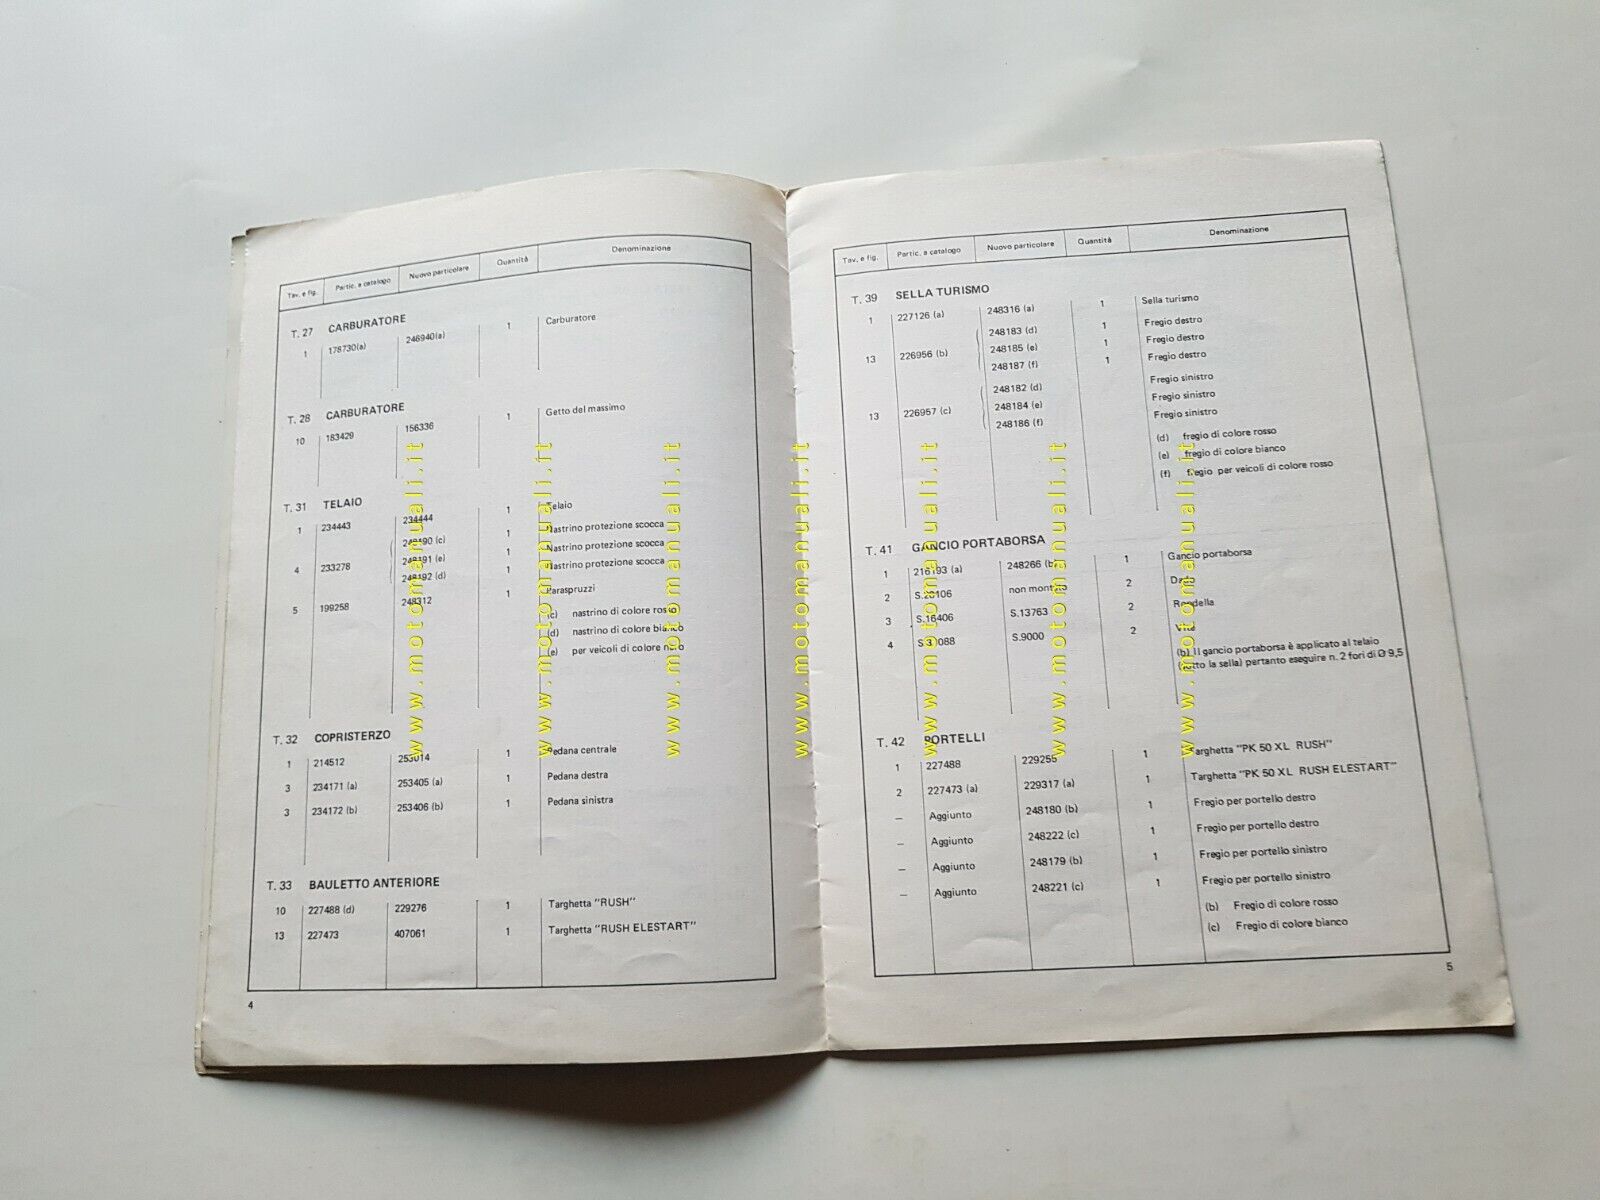 Tav. e fig. Partic. a catalogo Nuovo particolare Quantità Denominazione
T. 27 CARBURATORE
1 178730(a) 246940(a) 1 Carburatore
T. 28 CARBURATORE
10 183429 156336 1 Getto del massimo
T. 31 TELAIO
1 234443 234444 1 Telaio
248190 (c) 1 Nastrino protezione scocca
4 233278 248191 (e) 1 Nastrino protezione scocca
248192 (d) 1 Nastrino protezione scocca
5 199258 248312 1 Paraspruzzi
(c) nastrino di colore rosso
(d) nastrino di colore bianco
(e) per veicoli di colore nero
T. 32 COPRISTERZO
1 214512 253014 1 Pedana centrale
3 234171 (a) 253405 (a) 1 Pedana destra
3 234172 (b) 253406 (b) 1 Pedana sinistra
T. 33 BAULETTO ANTERIORE
10 227488 (d) 229276 1 Targhetta "RUSH"
13 227473 407061 1 Targhetta "RUSH ELESTART"
4
Tav. e fig. Partic. a catalogo Nuovo particolare Quantità Denominazione
T. 39 SELLA TURISMO
1 227126 (a) 248316 (a) 1 Sella turismo
248183 (d) 1 Fregio destro
13 226956 (b) 248185 (e) 1 Fregio destro
248187 (f) 1 Fregio destro
248182 (d) Fregio sinistro
13 226957 (c) 248184 (e) Fregio sinistro
248186 (f) Fregio sinistro
(d) fregio di colore rosso
(e) fregio di colore bianco
(f) fregio per veicoli di colore rosso
T. 41 GANCIO PORTABORSA
1 216193 (a) 248266 (b) 1 Gancio portaborsa
2 non montato 2 Dado
3 S.16406 S.13763 2 Rondella
4 S.9000 2 Vite
(b) Il gancio portaborsa è applicato al telaio
(sotto la sella) pertanto eseguire n. 2 fori di Ø 9,5
T. 42 PORTELLI
1 227488 229255 1 Targhetta "PK 50 XL RUSH"
2 227473 (a) 229317 (a) 1 Targhetta "PK 50 XL RUSH ELESTART"
– Aggiunto 248180 (b) 1 Fregio per portello destro
– Aggiunto 248222 (c) 1 Fregio per portello destro
– Aggiunto 248179 (b) 1 Fregio per portello sinistro
– Aggiunto 248221 (c) 1 Fregio per portello sinistro
(b) Fregio di colore rosso
(c) Fregio di colore bianco
5
www.motomanuali.it
www.motomanuali.it
www.motomanuali.it
www.motomanuali.it
www.motomanuali.it
www.motomanuali.it
www.motomanuali.it